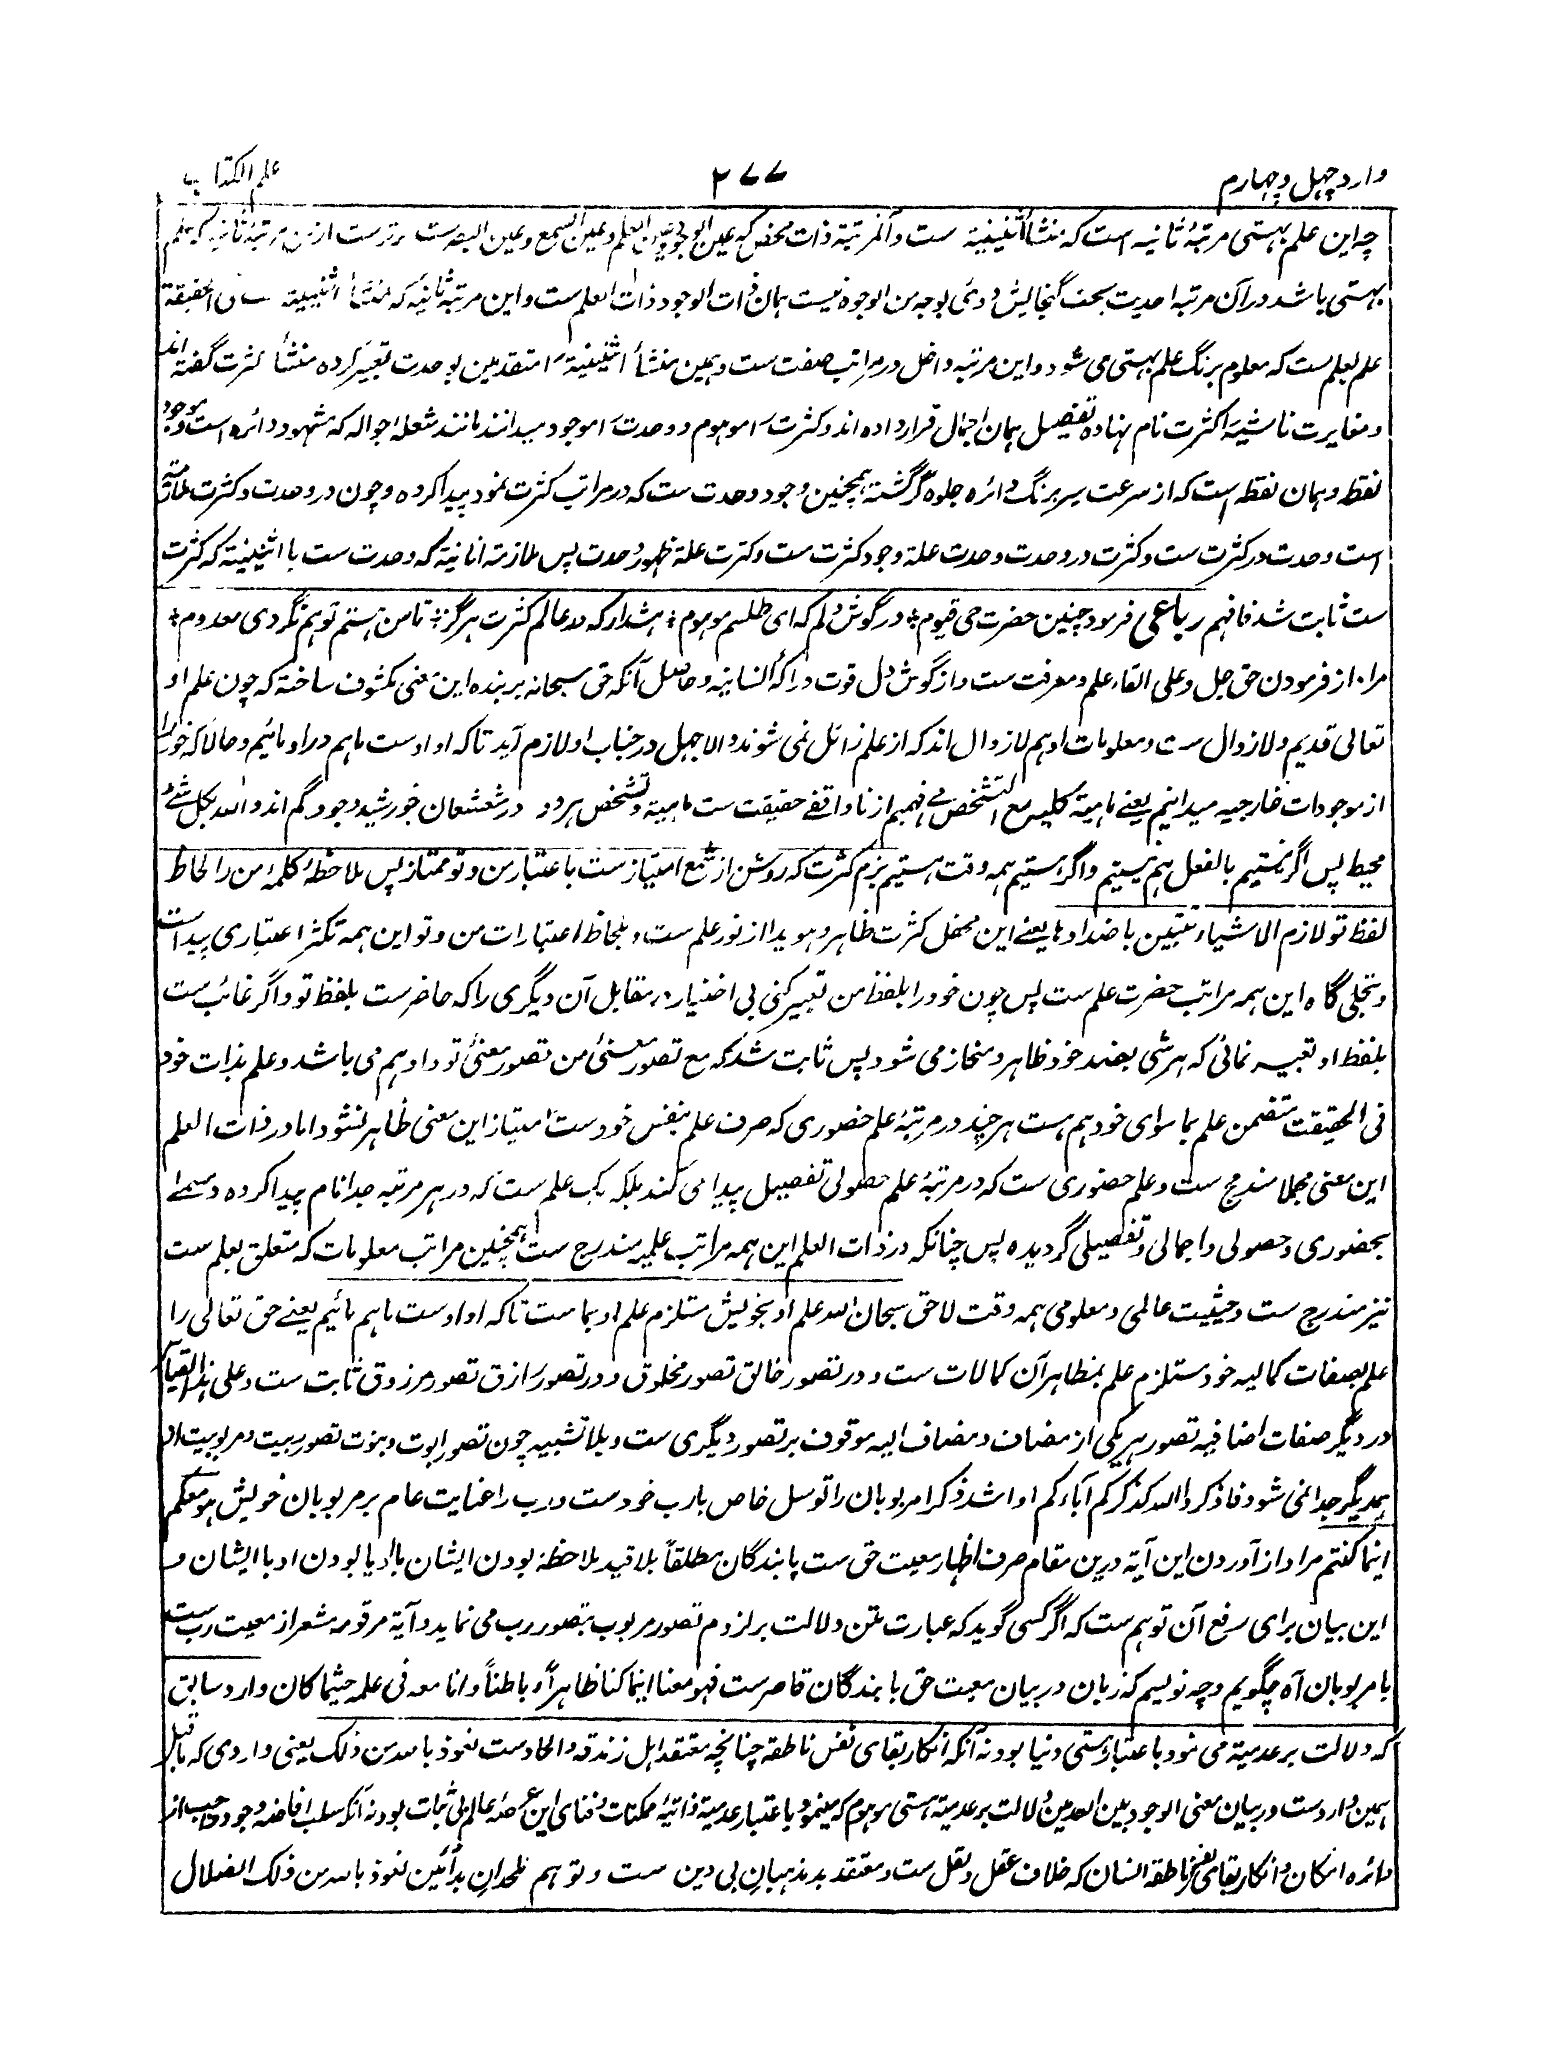 وارد چهل و چهارم ۲۷۷ علم الکتاب
چه این علم بهستی مرتبهٔ ثانیه است که منشأ اثنینیة ست و آنمرتبهٔ ذات محض که عین الوجود و عین العلم و عین السمع و عین البصرست برترست ازین مرتبهٔ ثانیه که علم
بهستی باشد در آن مرتبه احدیت بحت گنجایش دوئی بوجه من الوجوه نیست همان ذات الوجود ذات العلم ست و این مرتبهٔ ثانیه که منشأ اثنینیة ست فی الحقیقة
علم بعلم ست که معلوم برنگ علم بهستی می شود و این مرتبه داخل در مراتب صفت ست و همین منشأ اثنینیة را متقدمین بوحدت تعبیر کرده منشأ کثرت گفته اند
و مغایرت ناشیه را کثرت نام نهاده تفصیل همان اجمال قرار داده اند و کثرت را موهوم و وحدت را موجود میدانند مانند شعلهٔ جواله که مشهود دائره است و موجود
نقطه و همان نقطه است که از سرعت سیر برنگ دائره جلوه گر گشته همچنین وجود وحدت ست که در مراتب کثرت نمود پیدا کرده و چون در وحدت و کثرت ملازمة
است وحدت در کثرت ست و کثرت در وحدت و وحدت علة وجود کثرت ست و کثرت علة ظهور وحدت پس ملازمة انانیة که وحدت ست با اثنینیة که کثرت
ست ثابت شد فافهم رباعی فرمود چنین حضرت حی قیوم ؛ در گوش دلم که ای طلسم موهوم ؛ هشدار که در عالم کثرت هرگز ؛ تا من هستم تو هم نگردی معدوم ؛
مراد از فرمودن حق جل و علی القاء علم و معرفت ست و از گوش دل قوت دراکهٔ انسانیه و حاصل آنکه حق سبحانه بر بنده این معنی مکشوف ساخته که چون علم او
تعالی قدیم و لازوال ست و معلومات او هم لازوال اند که از علم زائل نمی شوند والا جهل در جناب او لازم آید تا که او اوست ما هم در او مائیم و حالا که خود را
از موجودات خارجیه میدانیم یعنے ماهیة کلیه مع التشخص می فهمیم از ناواقفے حقیقت ست ماهیة و تشخص هر دو در شعشعان خورشید وجود گم اند و الله بکل شئے
محیط پس اگر نیستیم بالفعل هم نیستیم و اگر هستیم همه وقت هستیم بزم کثرت که روشن از شمع امتیاز ست باعتبار من و تو ممتاز پس ملاحظهٔ کلمهٔ من را لحاظ
لفظ تو لازم الاشیاء تتبین باضدادها یعنے این محفل کثرت ظاهر و هویدا از نور علم ست و بلحاظ اعتبارات من و تو این همه تکثر اعتباری پیداست
و تجلی گاه این همه مراتب حضرت علم ست پس چون خود را بلفظ من تعبیر کنی بی اختیار در مقابل آن دیگری را که حاضر ست بلفظ تو و اگر غائب ست
بلفظ او تعبیر نمائی که هر شی بضد خود ظاهر و منحاز می شود پس ثابت شد که مع تصور معنیٔ من تصور معنیٔ تو و او هم می باشد و علم بذات خود
فی الحقیقت متضمن علم بما سوای خود هم هست هر چند در مرتبهٔ علم حضوری که صرف علم بنفس خود ست امتیاز این معنی ظاهر نشود اما در ذات العلم
این معنی مجملا مندرج ست و علم حضوری ست که در مرتبهٔ علم حصولی تفصیل پیدا می کند بلکه یک علم ست که در هر مرتبه جدا نام پیدا کرده و مسمے
بحضوری و حصولی و اجمالی و تفصیلی گردیده پس چنانکه در ذات العلم این همه مراتب علمیه مندرج ست همچنین مراتب معلومات که متعلق بعلم ست
نیز مندرج ست و حیثیت عالمی و معلومی همه وقت لاحق سبحان الله علم او بخویش مستلزم علم او بما ست تا که او اوست ما هم مائیم یعنے حق تعالی را
علم بصفات کمالیه خود مستلزم علم بمظاهر آن کمالات ست و در تصور خالق تصور مخلوق و در تصور رازق تصور مرزوق ثابت ست و علی هذا القیاس
در دیگر صفات اضافیه تصور هر یکی از مضاف و مضاف الیه موقوف بر تصور دیگری ست و بلا تشبیه چون تصور ابوت و بنوت تصور ربیت و مربوبیت از
همدیگر جدا نمی شود فاذکروا الله کذکرکم آباءکم او اشد ذکرا مربوبان را توسل خاص با رب خود ست و رب را عنایت عام بر مربوبان خویش هو معکم
اینما کنتم مراد از آوردن این آیة درین مقام صرف اظهار معیت حق ست با بندگان مطلقاً بلا قید ملاحظهٔ بودن ایشان با او یا بودن او با ایشان و
این بیان برای رفع آن توهم ست که اگر کسی گوید که عبارت متن دلالت بر لزوم تصور مربوب بتصور رب می نماید و آیة مرقومه مشعر از معیت رب ست
با مربوبان آه چگویم و چه نویسم که زبان در بیان معیت حق با بندگان قاصر ست فهو معنا اینما کنا ظاهراً و باطناً و انا معه فی علمه حیثما کان وارد سابق
که دلالت بر عدمیة می نمود باعتبار هستی دنیا بود نه آنکه انکار بقای نفس ناطقه چنانچه معتقد اهل زندقه و الحاد ست نعوذ بالله من ذلک یعنی واردی که ماقبل
همین وارد ست در بیان معنی الوجود بین العدمین دلالت بر عدمیة هستی موهوم که مینمود باعتبار عدمیة ذاتیهٔ ممکنات و فنای این عرصهٔ عالم بی ثبات بود نه آنکه سلب افاضه وجود واجب از
دائره امکان و انکار بقای نفس ناطقه انسان که خلاف عقل و نقل ست و معتقد بد مذهبان بی دین ست و توهم ملحدان بدآئین نعوذ بالله من ذلک الضلال